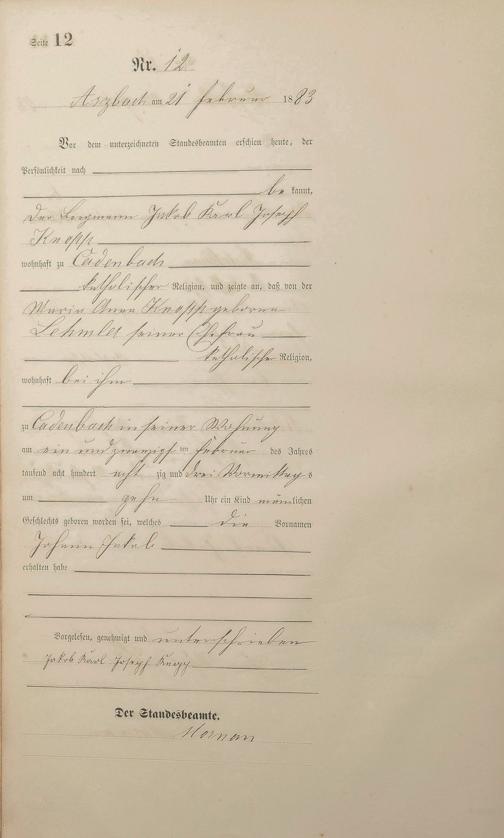 Seite 12
Nr. 12
Arzbach am 21 Februar 1883
Vor dem unterzeichneten Standesbeamten erschien heute, der
Persönlichkeit nach
be kannt,
der Bergmann Jakob Karl Joseph
Knopp
wohnhaft zu Cadenbach
katholischer Religion, und zeigte an, daß von der
Maria Anna Knopp geborene
Lehmler seiner Ehefrau
katholischer Religion,
wohnhaft bei ihm
zu Cadenbach in seiner Wohnung
am ein und zwanzigsten Februar des Jahres
tausend acht hundert acht zig und drei Vormittags
um zehn Uhr ein Kind männlichen
Geschlechts geboren worden sei, welches die Vornamen
Johann Jakob
erhalten habe
Vorgelesen, genehmigt und unterschrieben
Jakob Karl Joseph Knopp
Der Standesbeamte.